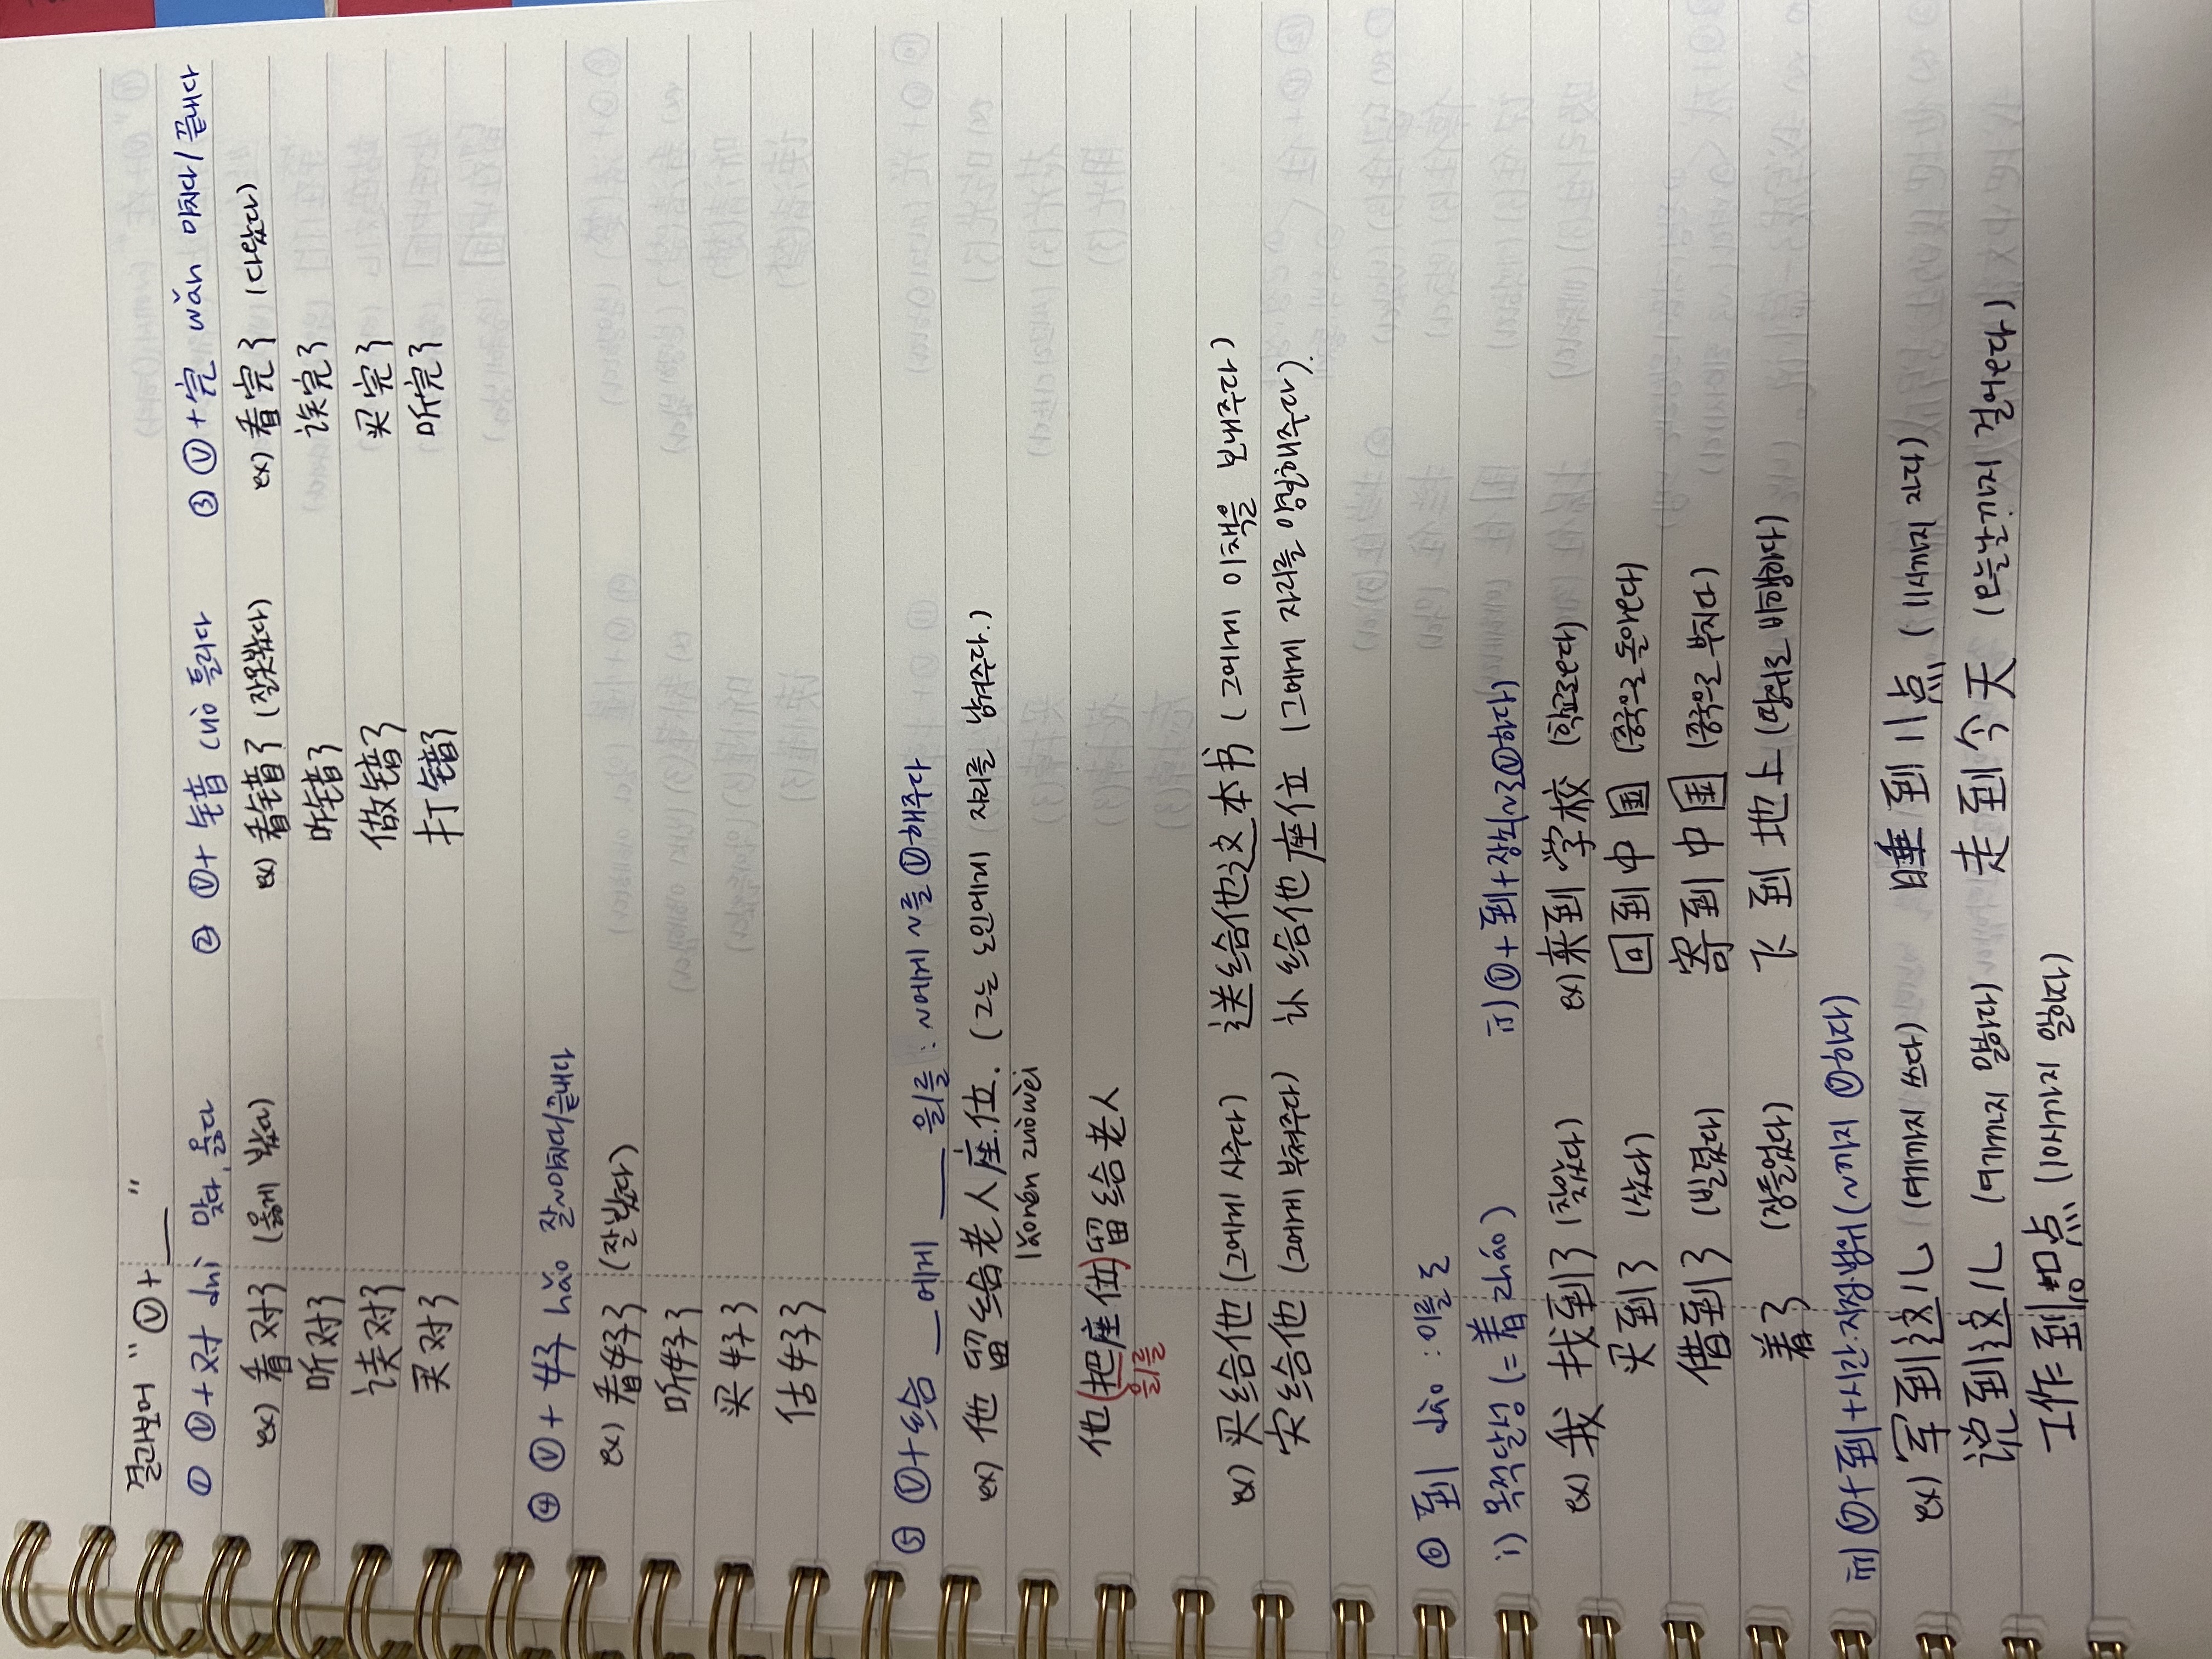 결과보어 " Ⓥ+ ___ "
① Ⓥ+对 duì 맞다, 옳다
ex) 看对了 (옳게 봤다)
听对了
读对了
买对了
② Ⓥ+ 错 cuò 틀리다
ex) 看错了 (잘못봤다)
听错了
做错了
打错了
③ Ⓥ+完 wán 마치다/끝내다
ex) 看完了 (다 봤다)
读完了
买完了
听完了
④ Ⓥ+ 好 hǎo 잘~마치다/끝내다
ex) 看好了 (잘 봤다)
听好了
买好了
估好了
⑤ Ⓥ+给 __에게 ___ 을/를 : ~에게 ~를 Ⓥ해주다
ex) 他 留给老人座位. (그는 노인에게 자리를 남겨주다.)
lǎorén zuòwèi
他(把座位)留给老人
을/를
ex) 买给他 (그에게 사주다) 送给他这本书 (그에게 이 책을 보내주다)
寄给他 (그에게 부쳐주다) 让给他座位 (그에게 자리를 양보해주다).
⑥ 到 dào : 이를 도
i) 목적달성 (=着 zháo)
ex) 我 找到了 (찾았다)
买到了 (샀다)
借到了 (빌렸다)
着了 (잠들었다)
ii) Ⓥ+到+장소(~로Ⓥ하다)
ex) 来到 学校 (학교로 오다)
回到中国 (중국으로 돌아오다)
寄到中国 (중국으로 부치다)
飞到地上 (땅위로 비행하다)
iii) Ⓥ+到+시간.지점.범위(~까지 Ⓥ하다)
ex) 写到这儿 (여기까지 쓰다) 睡到11点 (11시까지 자다)
说到这儿 (여기까지 말하다) 走到今天 (오늘날까지 걸어오다)
工作到10点 (10시까지 일하다)